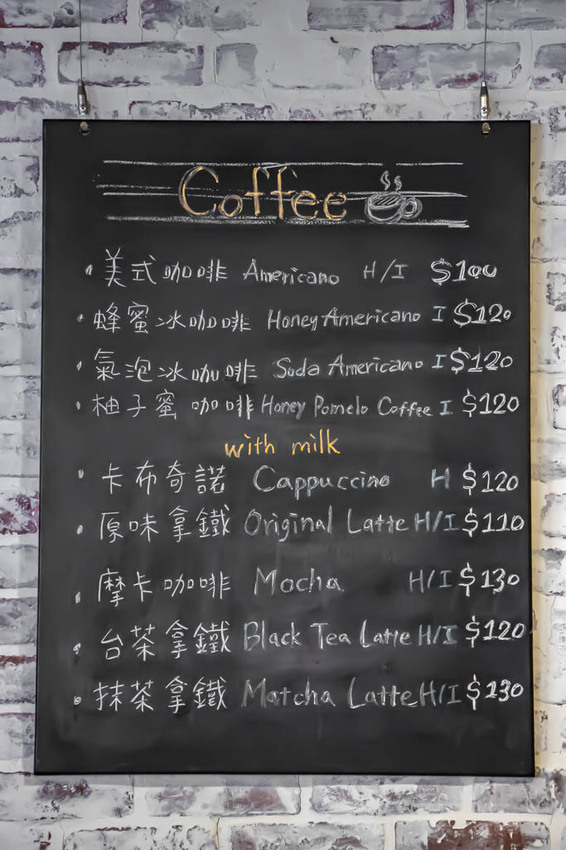 Coffee
美式咖啡 Americano H/I $100
蜂蜜冰咖啡 Honey Americano I $120
氣泡冰咖啡 Soda Americano I $120
柚子蜜咖啡 Honey Pomelo Coffee I $120
with milk
卡布奇諾 Cappuccino H $120
原味拿鐵 Original Latte H/I $110
摩卡咖啡 Mocha H/I $130
台茶拿鐵 Black Tea Latte H/I $120
抹茶拿鐵 Matcha Latte H/I $130